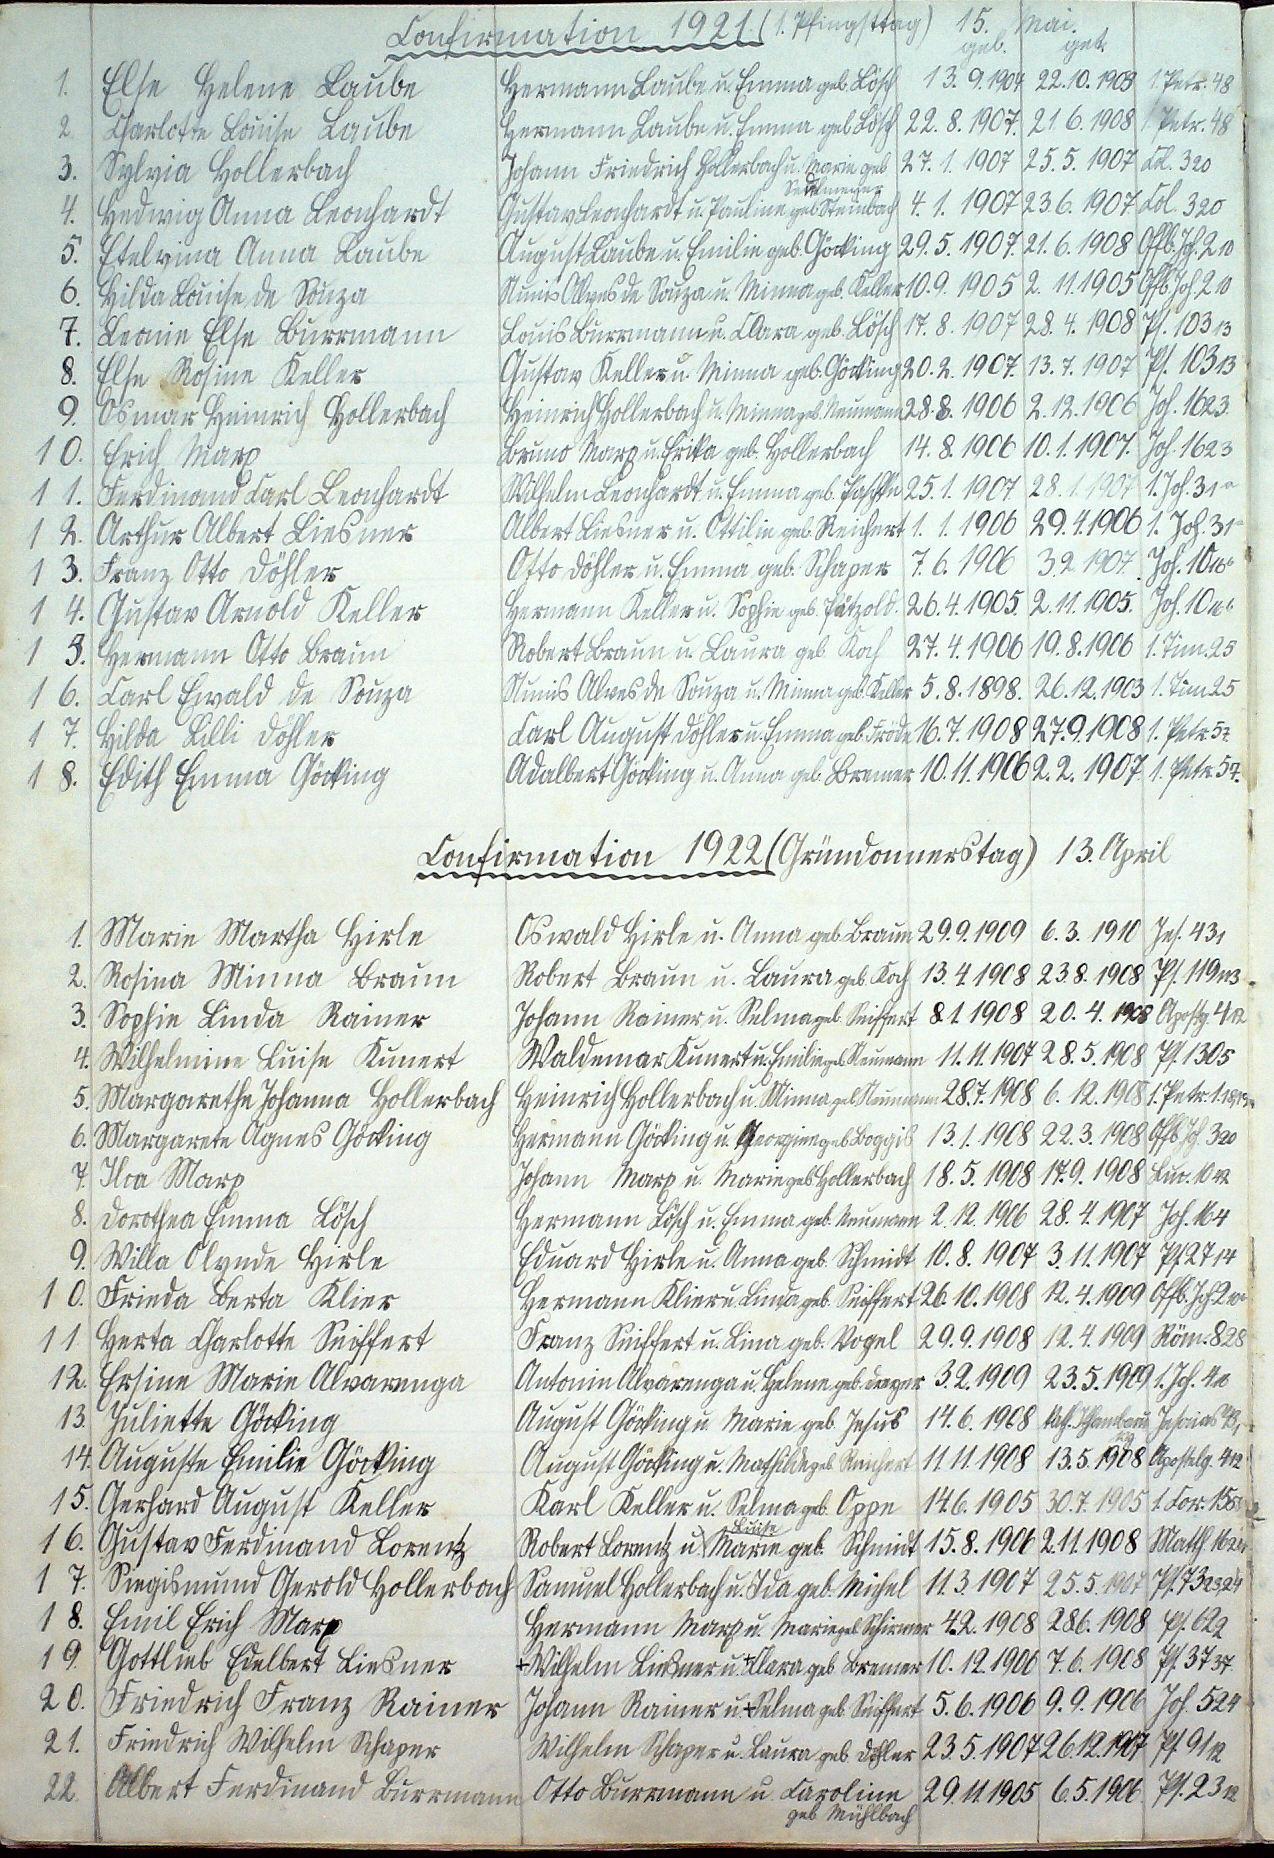 Confirmation 1921 (1. Pfingsttag) 15. Mai.
geb. get.
1. Else Helene Laube Hermann Laube u. Emma geb. Lösch 13. 9. 1904 22. 10. 1905 1. Petr. 48
2. Charlotte Louise Laube Hermann Laube u. Emma geb. Lösch 22. 8. 1907. 21 6. 1908 1. Petr. 48
3. Sylvia Hollerbach Johann Friedrich Hollerbach u. Marie geb. 27. 1. 1907 25. 5. 1907 Col. 320
4. Hedwig Anna Leonhardt Gustav Leonhardt u. Pauline geb. Steinbach 4. 1. 1907 23. 6. 1907 Col. 320
5. Etelvina Anna Laube August Laube u. Emilie geb. Göcking 29. 5. 1907. 21. 6. 1908 Offb. Joh. 2 10
6. Hilda Louise de Souza Nunis Alves de Souza u. Minna geb. Keller 10. 9. 1905 2. 11. 1905 Offb. Joh. 2 10
7. Leonie Else Burrmann Louis Burrmann u. Clara geb. Lösch 17. 8. 1907 28. 4. 1908 Ps. 103 13
8. Else Rosine Keller Gustav Keller u. Minna geb. Göcking 20. 2. 1907. 13. 7. 1907 Ps. 103 13
9. Osmar Heinrich Hollerbach Heinrich Hollerbach u. Minna geb. Neumann 28. 8. 1906 2. 12. 1906 Joh. 16 23
10. Erich Marx Bruno Marx u. Erika geb. Hollerbach 14. 8. 1906 10. 1. 1907. Joh. 16 23
11. Ferdinand Carl Leonhardt Wilhelm Leonhardt u. Emma geb. 25. 1. 1907 28. 1. 1907 1. Joh. 3 1
12. Arthur Albert Liesner Albert Liesner u. Ottilie geb. Reichert 1. 1. 1906 29. 4. 1906 1. Joh. 3 1
13. Franz Otto Döhler Otto Döhler u. Emma geb. Schaper 7. 6. 1906 3. 2. 1907. Joh. 10
14. Gustav Arnold Keller Hermann Keller u. Sophie geb. Pätzold. 26. 4. 1905. 2. 11. 1905. Joh. 10
15. Hermann Otto Braun Robert Braun u. Laura geb. Koch 27. 4. 1906 19. 8. 1906 1. Tim. 25
16. Carl Ewald de Souza Nunis Alves de Souza u. Minna geb. Keller 5. 8. 1898. 26. 12. 1903 1. Tim 25
17. Hilda Lilli Döhler Carl August Döhler u. Emma geb. Fröde 16. 7. 1908 27. 9. 1908 1. Petr. 5 7
18. Edith Emma Göcking Adalbert Göcking u. Anna geb. Bremer 10. 11. 1906 2. 2. 1907 1. Petr. 5 7.
Confirmation 1922 (Gründonnerstag) 13. April
1. Marie Martha Hirle Oswald Hirle u. Anna geb. Braun 29. 9. 1909 6. 3. 1910 Jes. 43 1
2. Rosina Minna Braun Robert Braun u. Laura geb. Koch 13. 4. 1908 23 8. 1908 Ps. 119
3. Sophie Linda Rainer Johann Rainer u. Selma geb. Seiffert 8. 1. 1908 20. 4. 1908 Apostg. 4 12
4. Wilhelmine Luise Kunert Waldemar Kunert u. Emilie geb. Neumann 11. 11. 1907 28. 5. 1908 Ps. 130 5
5. Margarethe Johanna Hollerbach Heinrich Hollerbach u. Minna geb. Neumann 28. 7. 1908 6. 12. 1908 1. Petr. 1.
6. Margarete Agnes Göcking Hermann Göcking u. Georgine geb. Boggis 13. 1. 1908 22. 3. 1908 Offb. Joh. 3 20
7. Ilca Marx Johann Marx u. Marie geb. Hollerbach 18. 5. 1908 17. 9. 1908 Luc. 10 42
8. Dorothea Emma Lösch Hermann Lösch u. Emma geb. Neumann 2. 12. 1906 28. 4. 1907 Joh. 16 4
9. Willa Olynde Hirle Eduard Hirle u. Anna geb. Schmidt 10. 8. 1907 3. 11. 1907 Ps. 27 14
10. Frieda Berta Klier Hermann Klier u. Lina geb. Seiffert 26. 10. 1908 12. 4. 1909 Offb. Joh. 2 10
11 Herta Charlotte Seiffert Franz Seiffert u. Lina geb. Vogel 29. 9. 1908 12. 4. 1909 Röm. 8 28
12. Ersine Marie Alvarenga Antonio Alvarenga u. Helene geb. Dreyer 3. 2. 1909 23. 5. 1909 1. Joh. 4
13. Juliette Göcking August Göcking u. Marie geb. Jesus 14. 6. 1908 Jesaias
14. Auguste Emilie Göcking August Göcking u. Mathilde geb. Reichert 11. 11. 1908 13. 5. 1908 Apostelg. 4 12
15. Gerhard August Keller Karl Keller u. Selma geb. Oppe 14. 6. 1905 30. 7. 1905 1. Cor. 15
16. Gustav Ferdinand Lorentz Robert Lorentz u. Luise Marie geb. Schmidt 15. 8. 1906 2. 11. 1908 Math. 16
17. Siegismund Gerold Hollerbach Samuel Hollerbach u. Ida geb. Michel 11. 3. 1907 25. 5. 1907 Ps. 73 23 24
18. Emil Erich Marx Hermann Marx u. Marie geb. Schirmer 4. 2. 1908 28 6. 1908 Ps. 62 2
19 Gottlieb Edelbert Liesner +Wilhelm Liesner u. +Clara geb. Bremer 10. 12. 1906 7. 6. 1908 Ps. 37 37
20. Friedrich Franz Rainer Johann Rainer u. +Selma geb. Seiffert 5. 6. 1906 9. 9. 1906 Joh. 5 24
21. Friedrich Wilhelm Schaper Wilhelm Schaper u. Laura geb. Döhler 23. 5. 1907 26. 12. 1907 Ps. 91
22. Albert Ferdinand Burrmann Otto Burrmann u. Caroline 29. 11. 1905 6. 5. 1906 Ps. 23
geb. Mühlbach